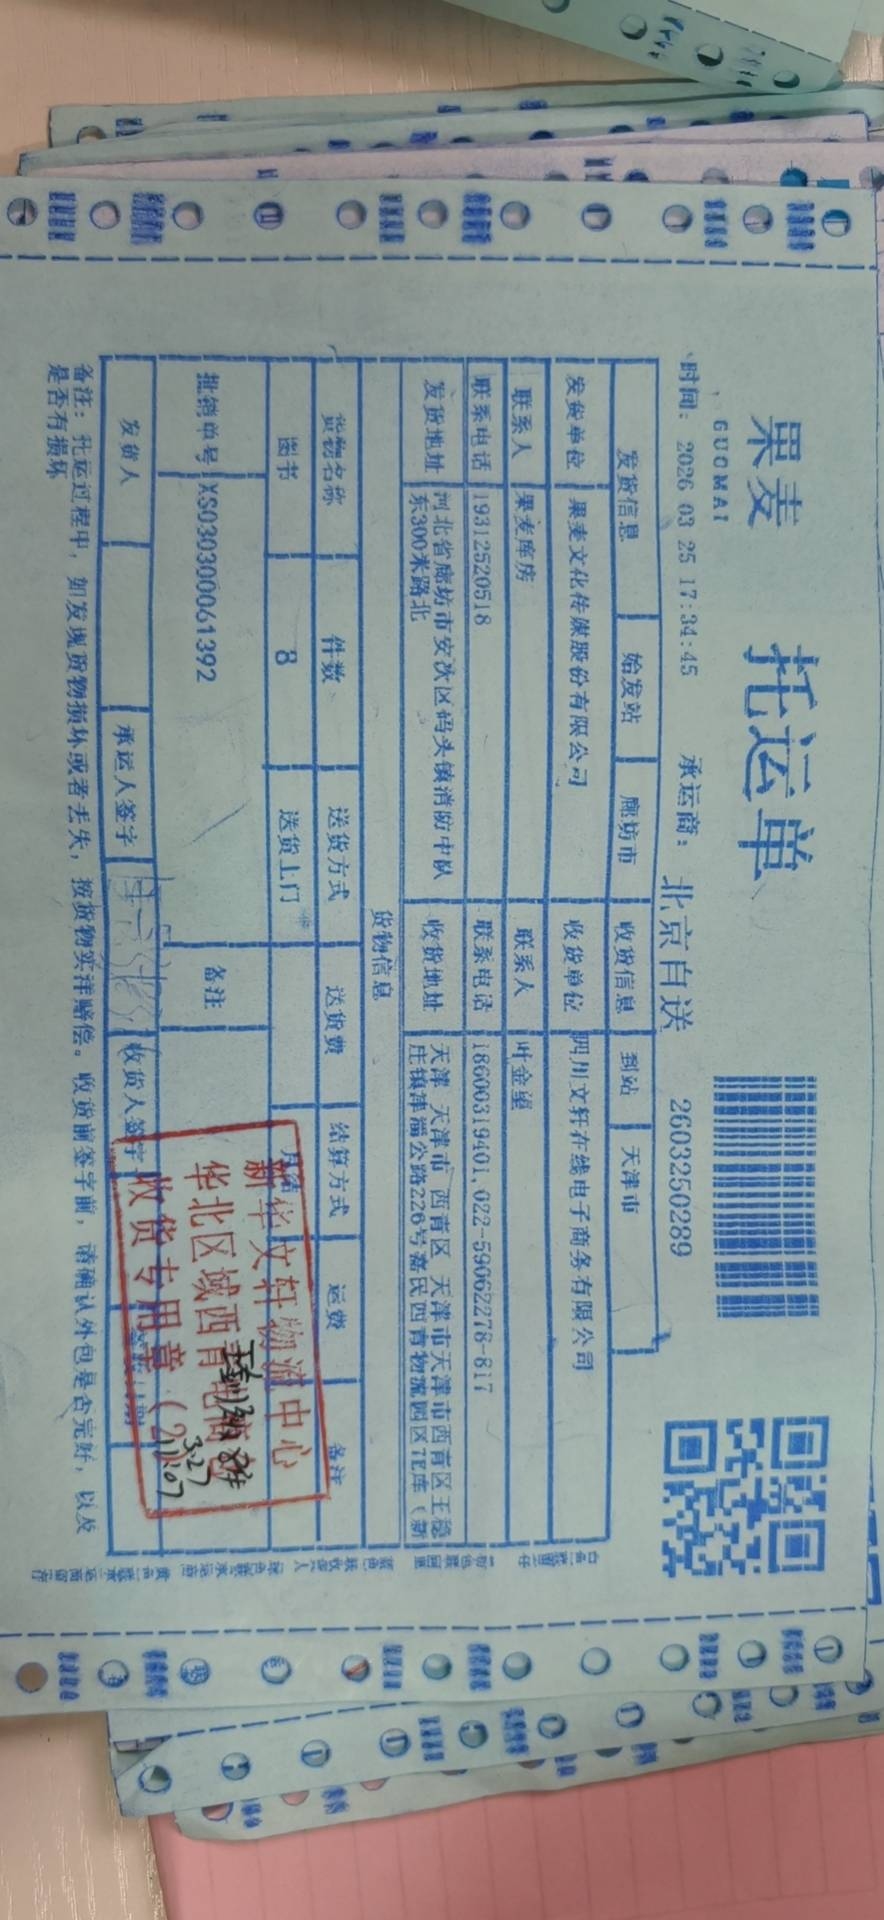 果麦 托运单
GUOMAI
时间: 2026 03 25 17:34:45 承运商: 北京自送 2603250289
发货信息 始发站 廊坊市 收货信息 到站 天津市
发货单位 果麦文化传媒股份有限公司 收货单位 四川文轩在线电子商务有限公司
联系人 果麦库房 联系人 叶金望
联系电话 19312520518 联系电话 18600319401,022-59062278-817
发货地址 河北省廊坊市安次区码头镇消防中队东300米路北 收货地址 天津 天津市 西青区 天津市天津市西青区王稳庄镇津淄公路226号嘉民西青物流园区7E库(新
货物信息
货物名称 件数 送货方式 送货费 结算方式 运费 备注
图书 8 送货上门 月结
批销单号 XS030300061392 备注
发货人 承运人签字 收货人签字
新华文轩物流中心
华北区域西青
收货专用章(2)
3.27
11:07
备注: 托运过程中, 如发现货物损坏或者丢失, 按货物实洋赔偿。收货前签字前, 请确认外包是否完好, 以及
是否有损坏